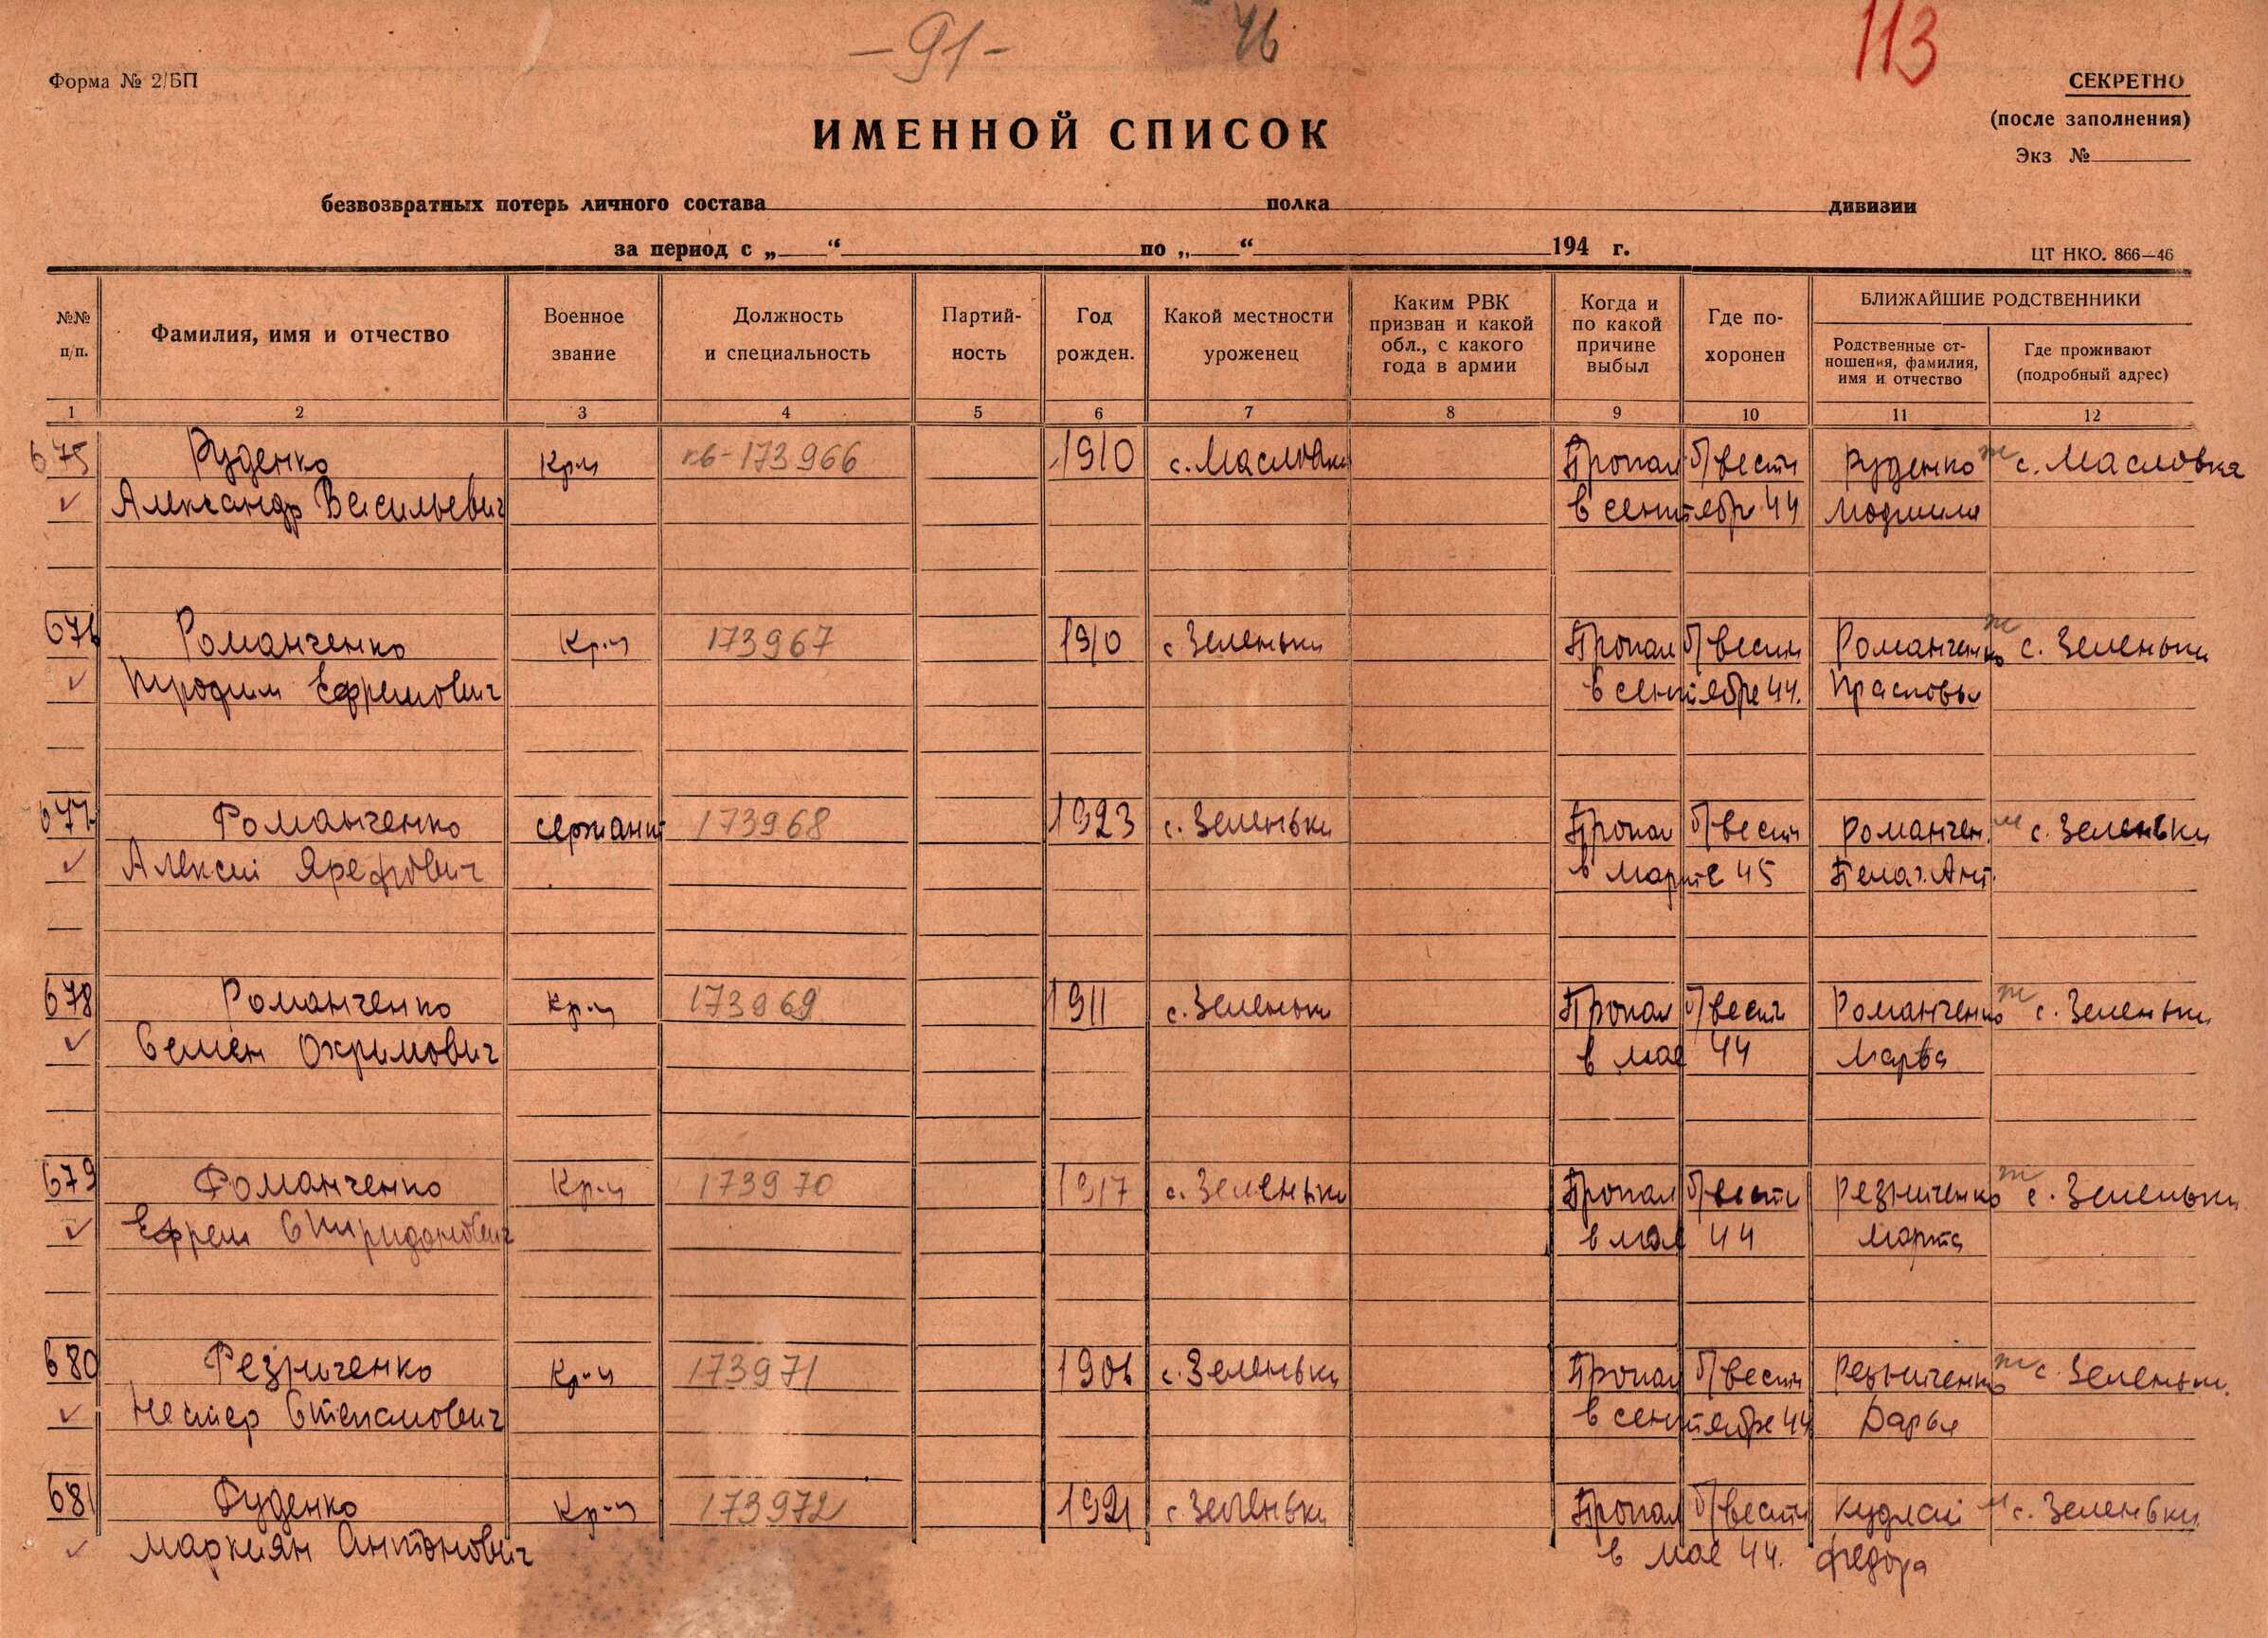 -91-
46
113
Форма № 2/БП
СЕКРЕТНО
(после заполнения)
Экз №
ИМЕННОЙ СПИСОК
безвозвратных потерь личного состава полка дивизии
за период с „ “ по „ “ 194 г.
ЦТ НКО. 866—46
№№ п/п.
Фамилия, имя и отчество
Военное звание
Должность и специальность
Партий-ность
Год рожден.
Какой местности уроженец
Каким РВК призван и какой обл., с какого года в армии
Когда и по какой причине выбыл
Где по-хоронен
БЛИЖАЙШИЕ РОДСТВЕННИКИ
Родственные от-ношения, фамилия, имя и отчество
Где проживают (подробный адрес)
1 2 3 4 5 6 7 8 9 10 11 12
675 Руденко Кр-ц 173966 1910 с. Масловка Пропал б/вести Руденко ж с. Масловка
Александр Васильевич в сентябр 44
676 Романченко Кр-ц 173967 1910 с Зеленьки Пропал б/вести Романченко ж с. Зеленьки
Ефремович в сентябре 44.
677 Романченко сержант 173968 1923 с. Зеленьки Пропал б/вести Романчен. м с. Зеленьки
Алексей Ярефович в марте 45 Пелаг. Ант.
678 Романченко Кр-ц 173969 1911 с. Зеленьки Пропал б/вести Романченко ж с. Зеленьки
Семён Охримович в мае 44 Марва
679 Романченко Кр-ц 173970 1917 с. Зеленьки Пропал б/вести Резниченко ж с. Зеленьки
Ефрем Спиридонович в мае 44 Марта
680 Резниченко Кр-ц 173971 с. Зеленьки Пропал б/вести Резниченко ж с. Зеленьки.
Нестер Степанович в сентябре 44 Дарья
681 Руденко Кр-ц 173972 1921 с Зеленьки Пропал б/вести м с. Зеленьки
Маркиян Антонович в мае 44. Федора